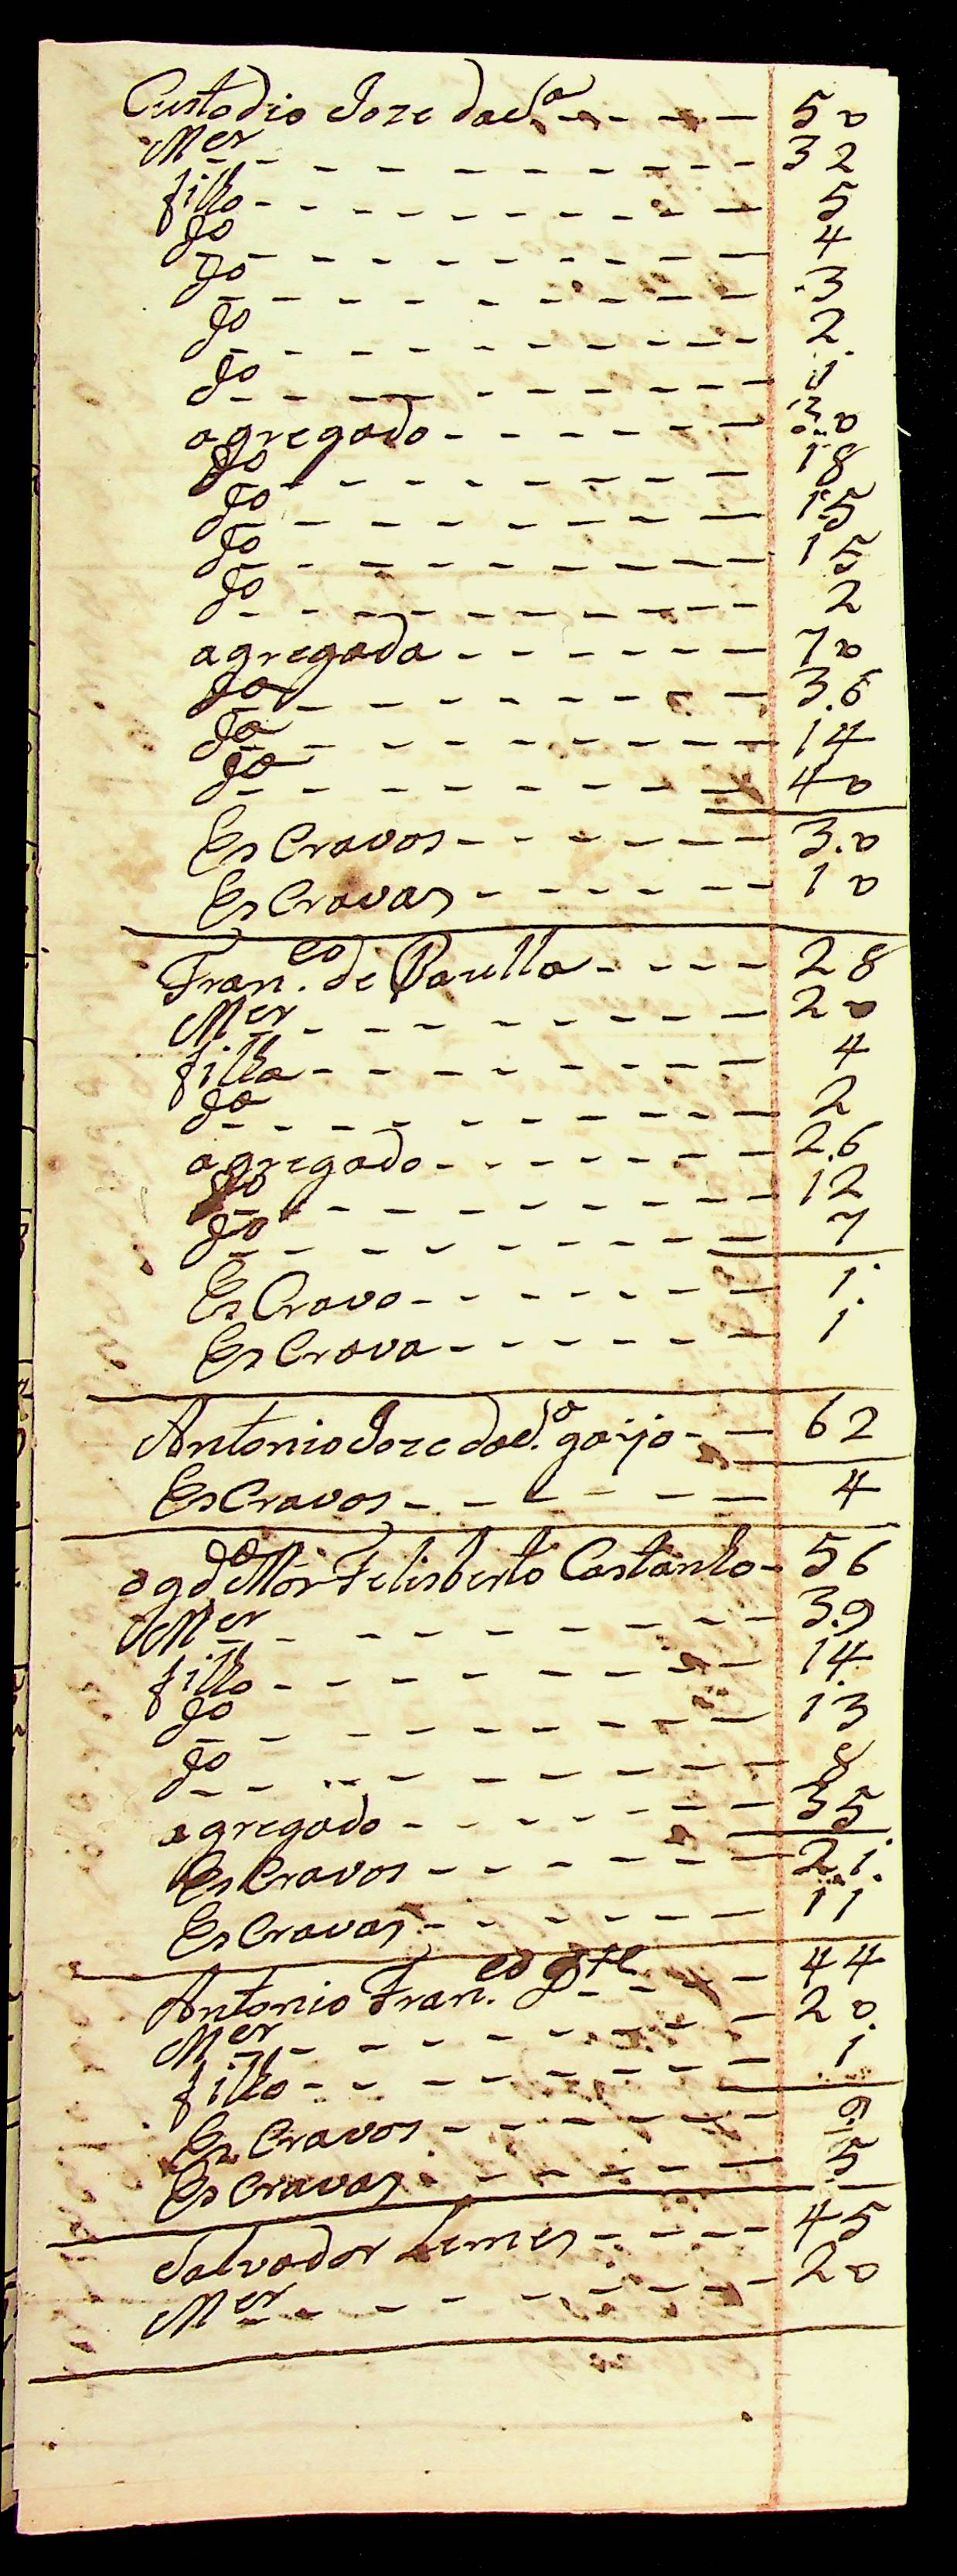 Custodio Joze da S.ª - - - - 50
M.er - - - - - - - - - 32
filho - - - - - - - - - 5
do - - - - - - - - - 4
do - - - - - - - - - 3
do - - - - - - - - - 2
do - - - - - - - - - 1
agregado - - - - - - 30
do - - - - - - - - 18
do - - - - - - - - 15
do - - - - - - - - 15
do - - - - - - - - 2
agregada - - - - - - 70
da - - - - - - - - 36
da - - - - - - - - 14
da - - - - - - - - 40
EsCravos - - - - - - 30
EsCravas - - - - - - 10
Fran.co de Paulla - - - - 28
M.er - - - - - - - - 20
filha - - - - - - - - 4
da - - - - - - - - 2
agregado - - - - - - 26
do - - - - - - - - 12
do - - - - - - - - 7
EsCravo - - - - - - 1
EsCrava - - - - - - 1
Antonio Joze da S.ª - - 62
EsCravos - - - - - - 4
Mor Felisberto Castanho - 56
M.er - - - - - - - - 39
filho - - - - - - - - 14
do - - - - - - - - 13
do - - - - - - - - 8
agregado - - - - - - 35
EsCravos - - - - - - 21
EsCravas - - - - - - 11
Antonio Fran.co - - - - 44
M.er - - - - - - - - 20
filho - - - - - - - - 1
EsCravos - - - - - - 9
EsCravas - - - - - - 5
Salvador Lemes - - - - 45
M.er - - - - - - - - 20